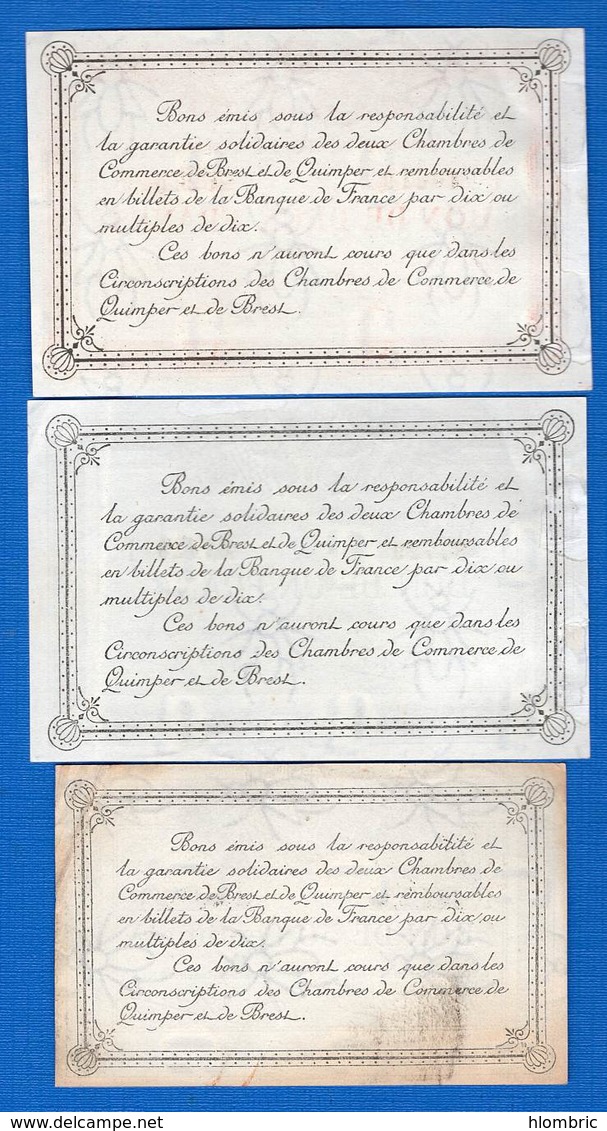 Bons émis sous la responsabilité et
la garantie solidaires des deux Chambres de
Commerce de Brest et de Quimper et remboursables
en billets de la Banque de France par dix ou
multiples de dix.
Ces bons n'auront cours que dans les
Circonscriptions des Chambres de Commerce de
Quimper et de Brest.
Bons émis sous la responsabilité et
la garantie solidaires des deux Chambres de
Commerce de Brest et de Quimper et remboursables
en billets de la Banque de France par dix ou
multiples de dix.
Ces bons n'auront cours que dans les
Circonscriptions des Chambres de Commerce de
Quimper et de Brest.
Bons émis sous la responsabilité et
la garantie solidaires des deux Chambres de
Commerce de Brest et de Quimper et remboursables
en billets de la Banque de France par dix ou
multiples de dix.
Ces bons n'auront cours que dans les
Circonscriptions des Chambres de Commerce de
Quimper et de Brest.
www.delcampe.net
hlombric